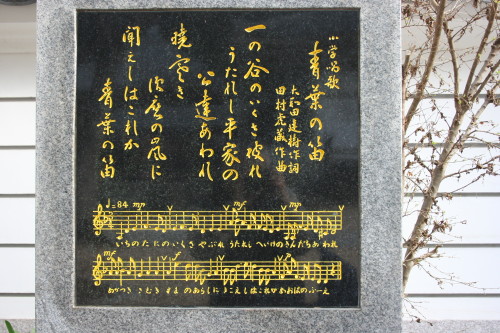 小学唱歌
青葉の笛
大和田建樹作詞
田村虎蔵作曲
一の谷のいくさ破れ
うたれし平家の
公達あわれ
暁寒き
須磨の嵐に
聞えしはこれか
青葉の笛
♩=84 mp mf mp
いちのたにのいくさやぶれうたれしへいけのきんだちあわれ
mf f mf
あかつきさむきすまのあらしにきこえしはこれかあおばのふーえ